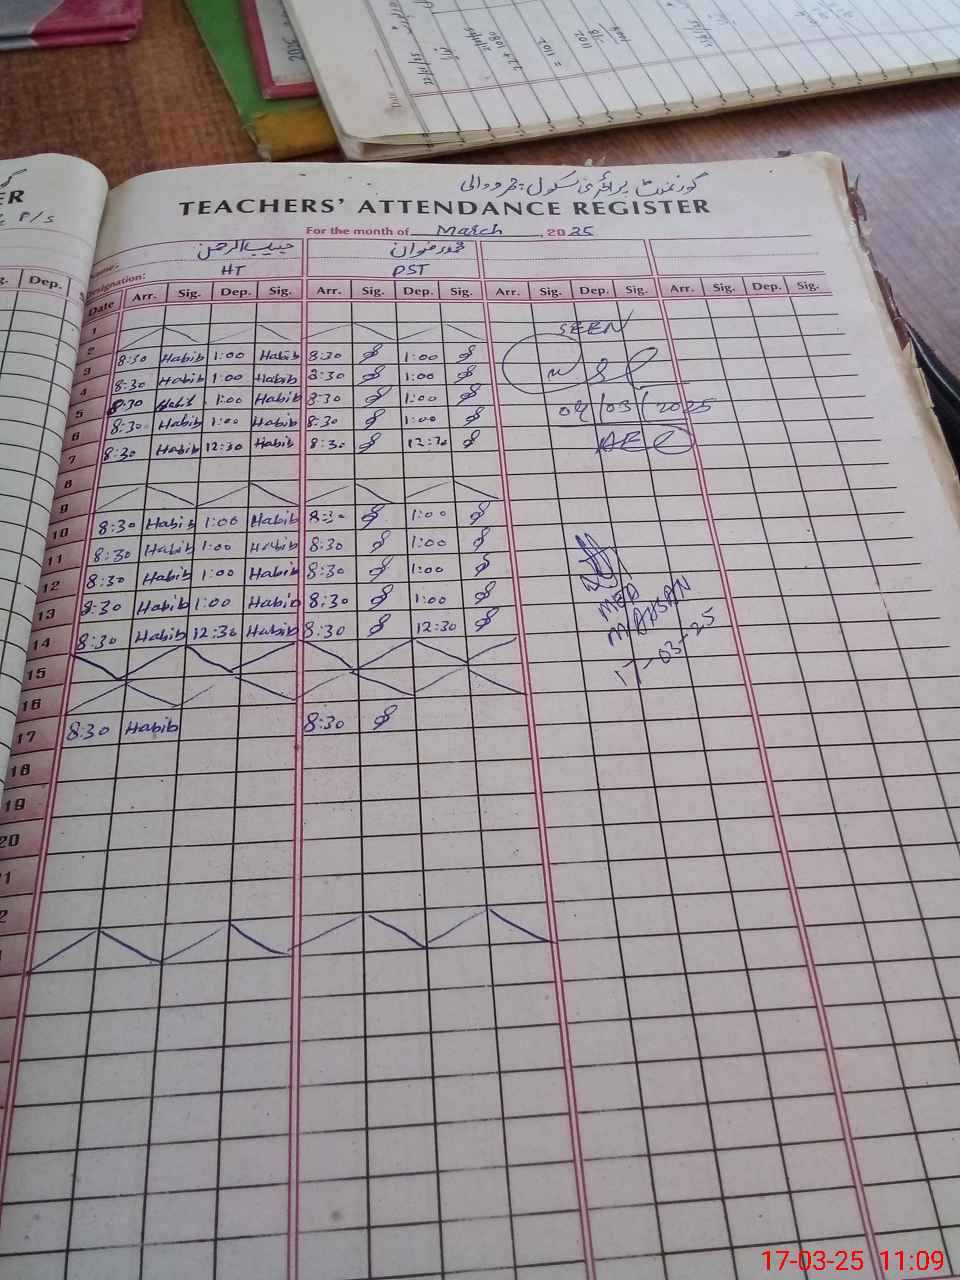 گورنمنٹ پرائمری سکول
TEACHERS' ATTENDANCE REGISTER
For the month of March, 2025
Name: حبیب الرحمن
Designation: HT PST
Date Arr. Sig. Dep. Sig. Arr. Sig. Dep. Sig. Arr. Sig. Dep. Sig. Arr. Sig. Dep. Sig.
1
2
3 8:30 Habib 1:00 Habib 8:30 1:00
4 8:30 Habib 1:00 Habib 8:30 1:00
5 8:30 Habib 1:00 Habib 8:30 1:00
6 8:30 Habib 1:00 Habib 8:30 1:00
7 8:30 Habib 12:30 Habib 8:30 12:30
8
9
10 8:30 Habib 1:00 Habib 8:30 1:00
11 8:30 Habib 1:00 Habib 8:30 1:00
12 8:30 Habib 1:00 Habib 8:30 1:00
13 8:30 Habib 1:00 Habib 8:30 1:00
14 8:30 Habib 12:30 Habib 8:30 12:30
15
16
17 8:30 Habib 8:30
18
19
20
SEEN
03/2025
AEO
17-03-25
ER
P/S
Dep.
17-03-25 11:09